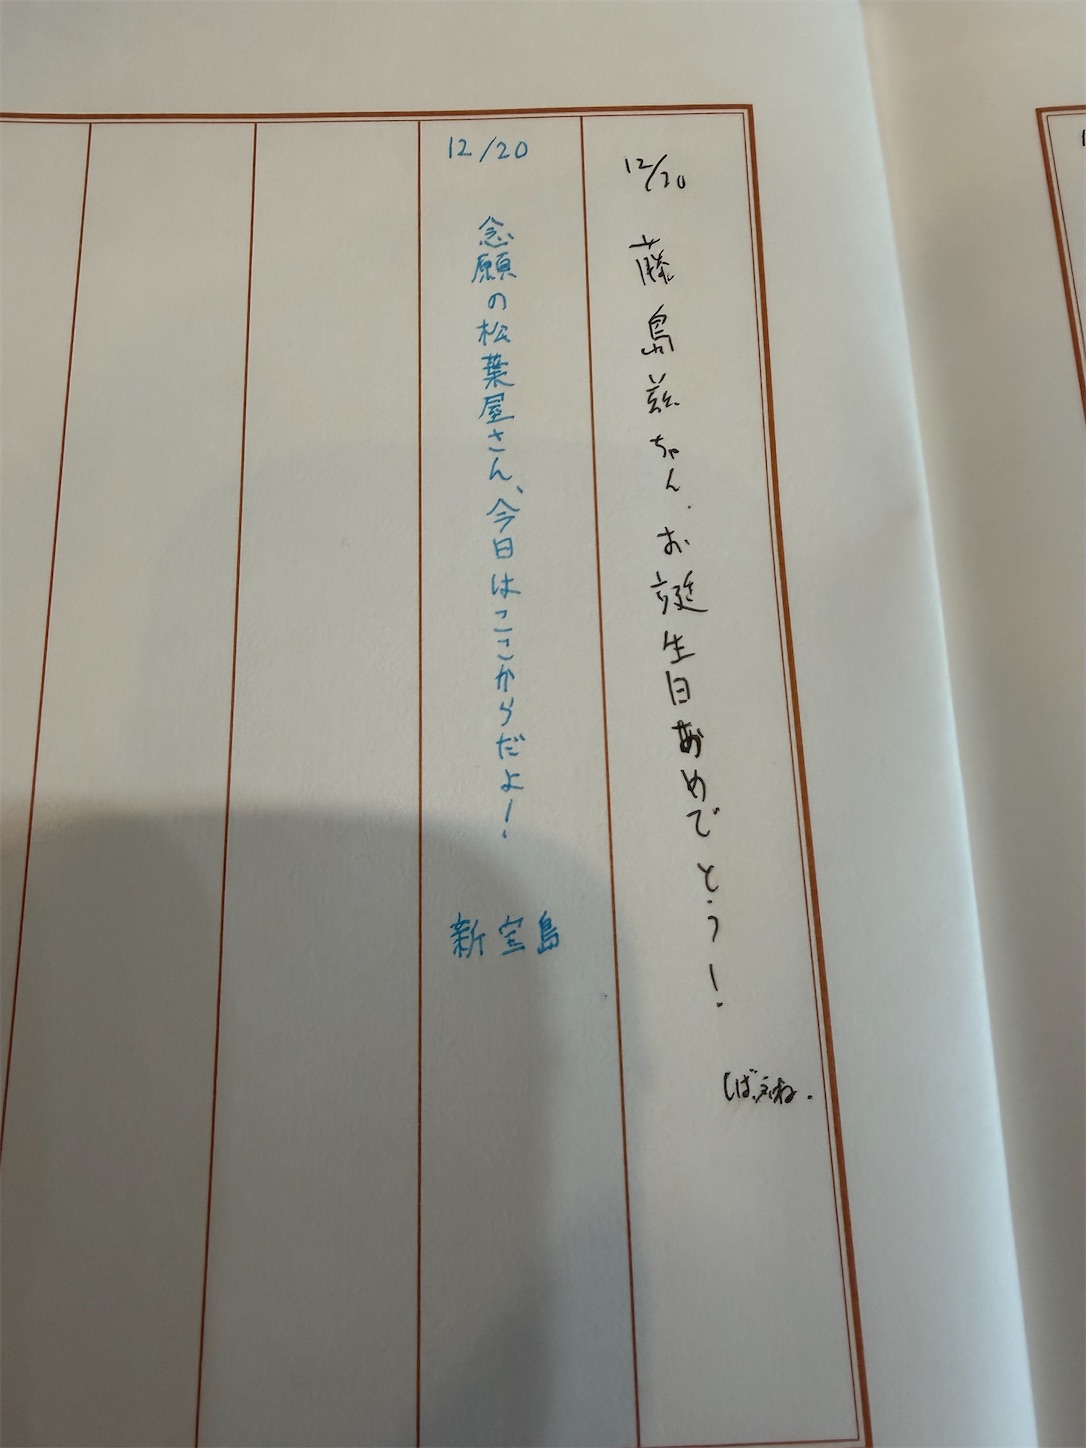 12/20
藤島慈ちゃん.お誕生日おめでとう!
12/20
念願の松葉屋さん、今日はここからだよ!
新宝島